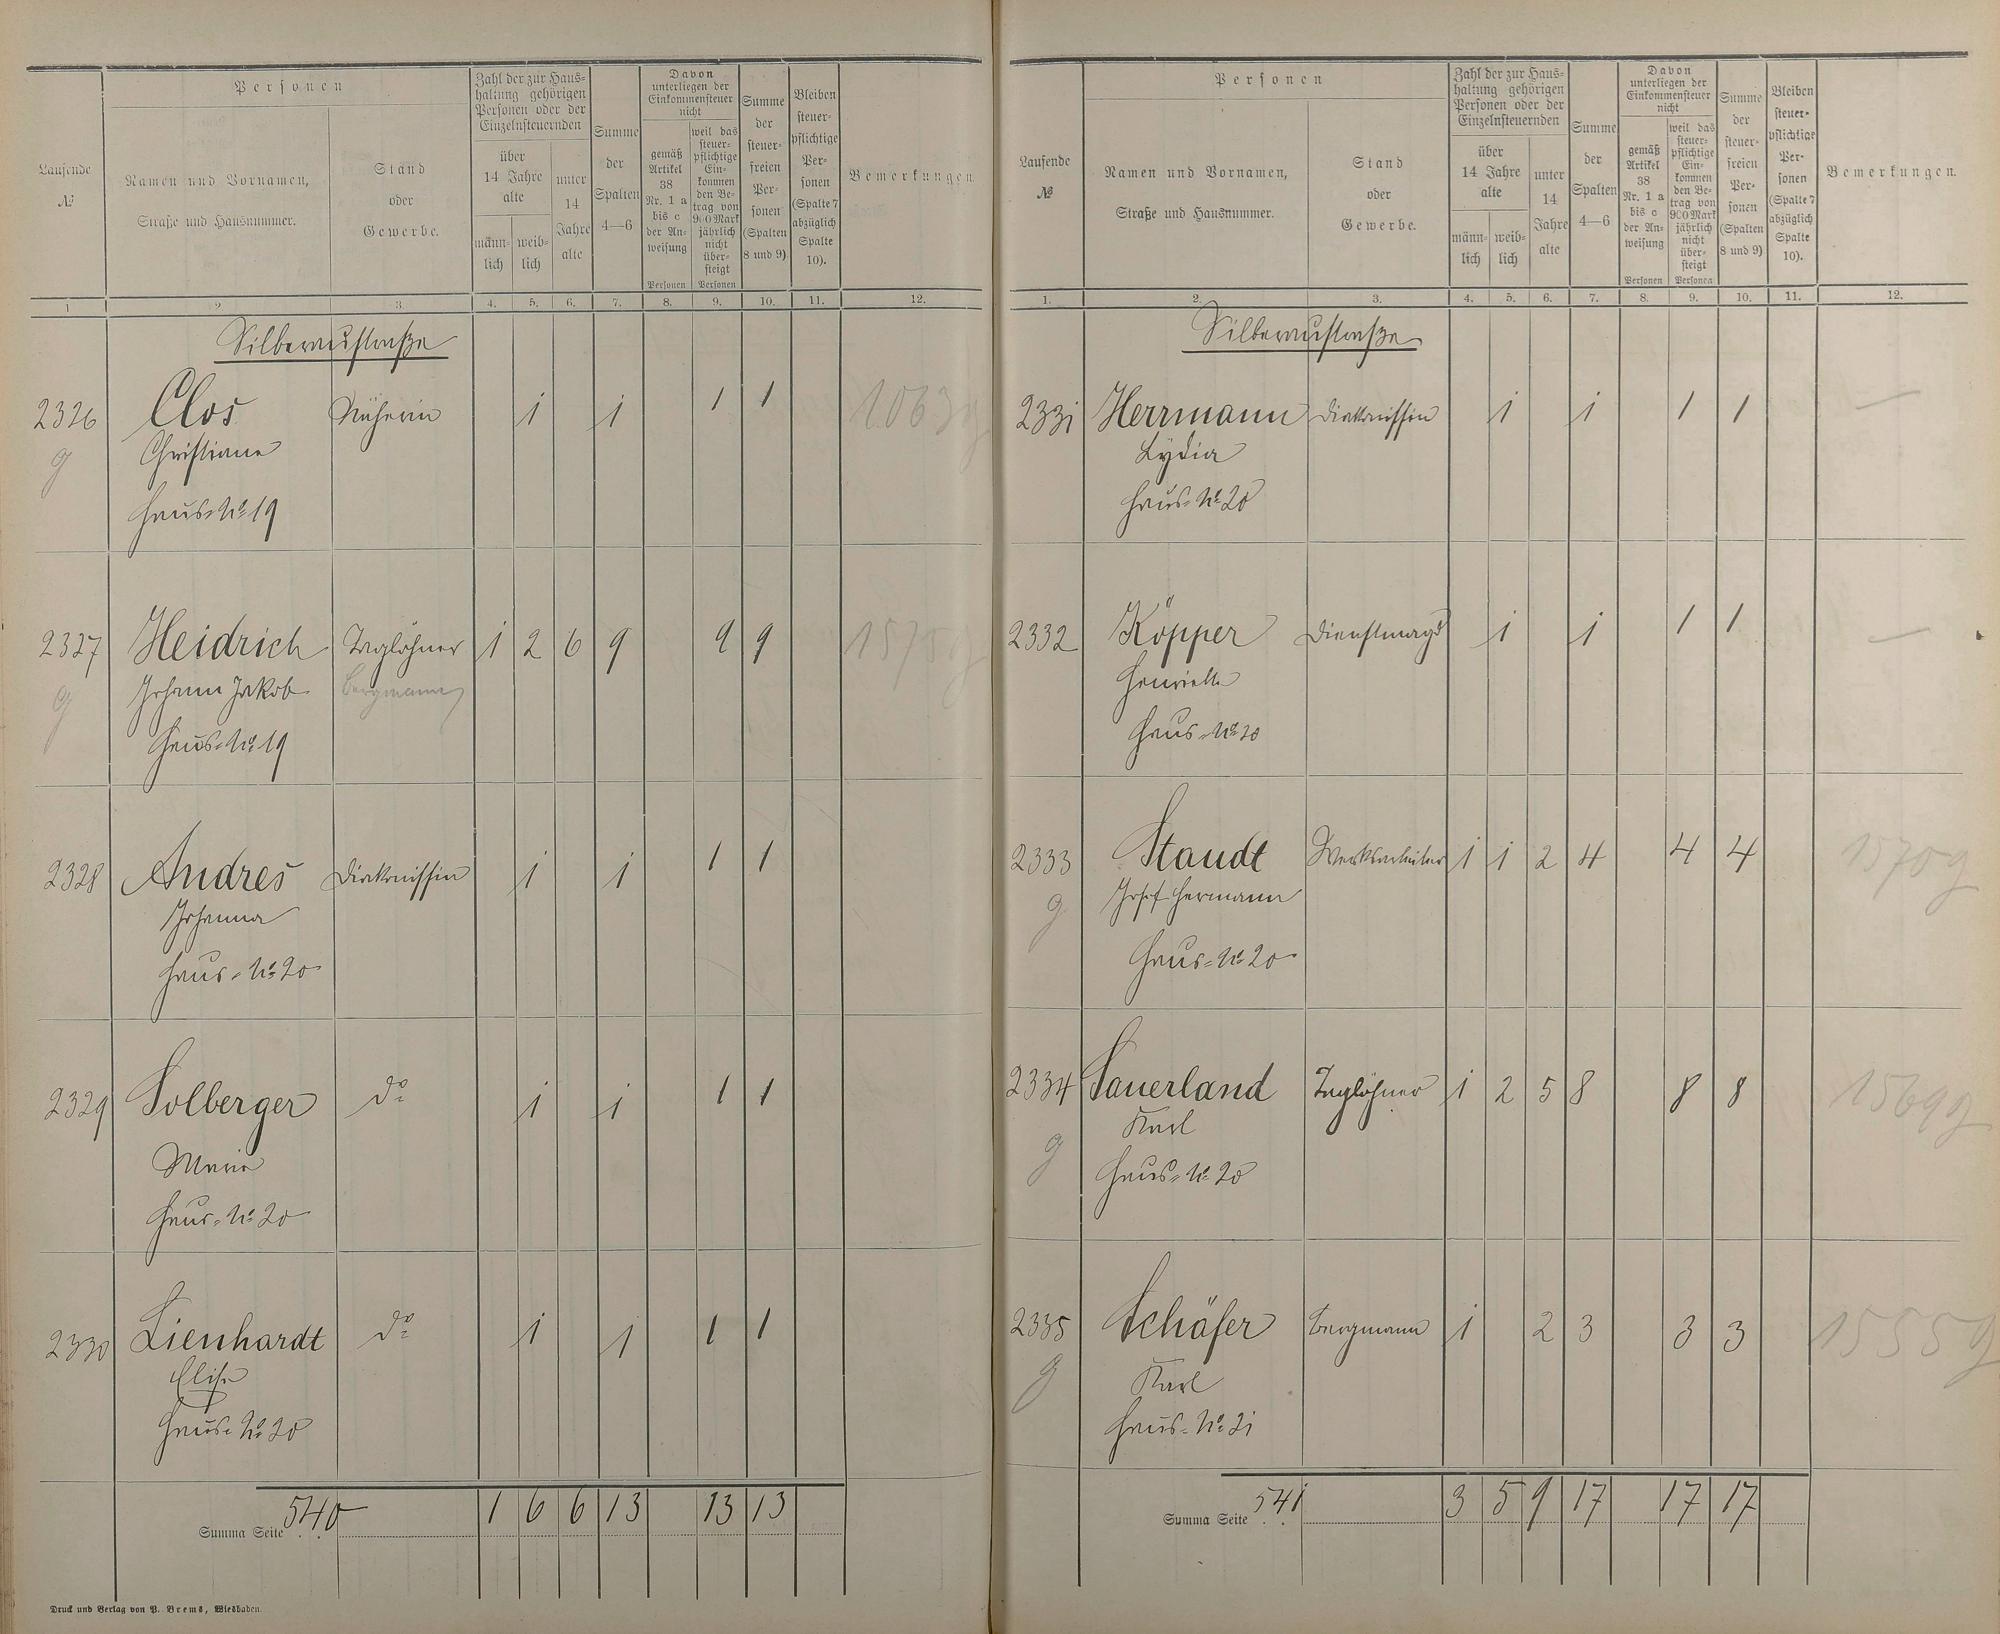 Laufende
№
Personen
Namen und Vornamen,
Straße und Hausnummer.
Stand
oder
Gewerbe.
Zahl der zur Haus-
haltung gehörigen
Personen oder der
Einzelnsteuernden
über
14 Jahre
alte
männ-
lich
weib-
lich
unter
14
Jahre
alte
Summe
der
Spalten
4—6
Davon
unterliegen der
Einkommensteuer
nicht
gemäß
Artikel
38
Nr. 1 a
bis c
der An-
weisung
Personen
weil das
steuer-
pflichtige
Ein-
kommen
den Be-
trag von
900 Mark
jährlich
nicht
über-
steigt
Personen
Summe
der
steuer-
freien
Per-
sonen
(Spalten
8 und 9)
Bleiben
steuer-
pflichtige
Per-
sonen
(Spalte 7
abzüglich
Spalte
10).
Bemerkungen.
1 2. 3. 4. 5. 6. 7. 8. 9. 10. 11. 12.
Silberaustraße
2326 Clos Näherin 1 1 1 1 1063g
g Christiane
Haus-№ 19
2327 Heidrich Taglöhner 1 2 6 9 9 9 1575g
g Johann Jakob Bergmann
Haus-№ 19
2328 Andres Diakonissin 1 1 1 1
Johanna
Haus-№ 20
2329 Solberger do 1 1 1 1
Maria
Haus-№ 20
2330 Lienhardt do 1 1 1 1
Elise
Haus-№ 20
Summa Seite 540 1 6 6 13 13 13
Druck und Verlag von P. Brems, Wiesbaden.
Laufende
№
Personen
Namen und Vornamen,
Straße und Hausnummer.
Stand
oder
Gewerbe.
Zahl der zur Haus-
haltung gehörigen
Personen oder der
Einzelnsteuernden
über
14 Jahre
alte
männ-
lich
weib-
lich
unter
14
Jahre
alte
Summe
der
Spalten
4—6
Davon
unterliegen der
Einkommensteuer
nicht
gemäß
Artikel
38
Nr. 1 a
bis c
der An-
weisung
Personen
weil das
steuer-
pflichtige
Ein-
kommen
den Be-
trag von
900 Mark
jährlich
nicht
über-
steigt
Personen
Summe
der
steuer-
freien
Per-
sonen
(Spalten
8 und 9)
Bleiben
steuer-
pflichtige
Per-
sonen
(Spalte 7
abzüglich
Spalte
10).
Bemerkungen.
1. 2. 3. 4. 5. 6. 7. 8. 9. 10. 11. 12.
Silberaustraße
2331 Herrmann Diakonissin 1 1 1 1 —
Lydia
Haus-№ 20
2332 Köpper Dienstmagd 1 1 1 1 —
Henriette
Haus-№ 20
2333 Staudt Werksarbeiter 1 1 2 4 4 4 1570g
g Josef Hermann
Haus-№ 20
2334 Sauerland Taglöhner 1 2 5 8 8 8 1569g
g Karl
Haus-№ 20
2335 Schäfer Bergmann 1 2 3 3 3 1555g
g Karl
Haus-№ 21
Summa Seite 541 3 5 9 17 17 17